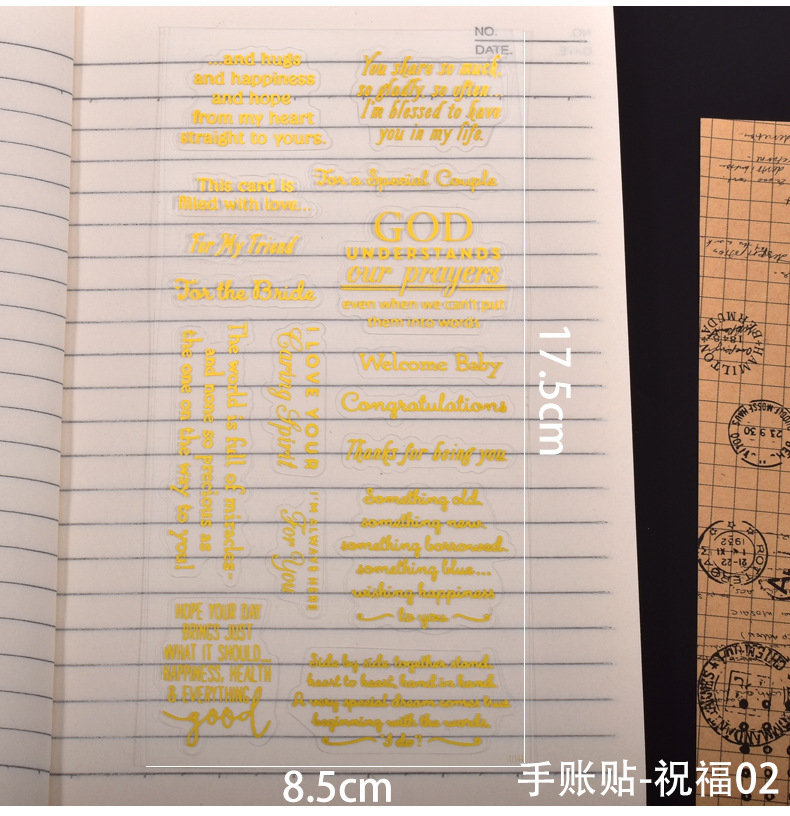 NO.
DATE.
...and hugs
and happiness
and hope
from my heart
straight to yours.
You share so much,
so gladly, so often...
I'm blessed to have
you in my life.
This card is
filled with love...
For a Special Couple
For My Friend
GOD
UNDERSTANDS
our prayers
even when we can't put
them into words.
For the Bride
The world is full of miracles-
and none so precious as
the one on the way to you!
I LOVE YOUR
Caring Spirit
Welcome Baby
Congratulations
Thanks for being you
I'M ALWAYS HERE
For You
Something old,
something new,
something borrowed,
something blue...
wishing happiness
to you
HOPE YOUR DAY
BRINGS JUST
WHAT IT SHOULD...
HAPPINESS, HEALTH
& EVERYTHING
good
Side by side together stand,
heart to heart, hand in hand.
A very special dream comes true
beginning with the words,
"I do"!
17.5cm
8.5cm
手账贴-祝福02
HAMILTON
BERMUDA
23.9.30
ROTTERDAM
21-22
1932